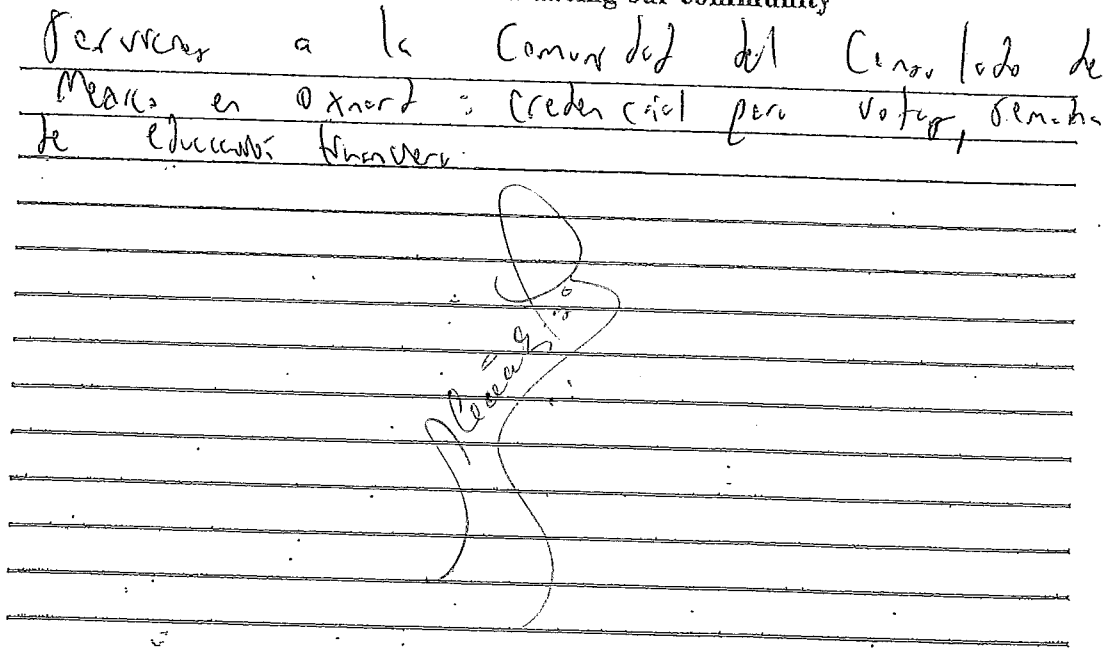 our community
Servicios a la Comunidad del Consulado de
Mexico en Oxnard : Credencial para votar, Semana
de educación financiera.